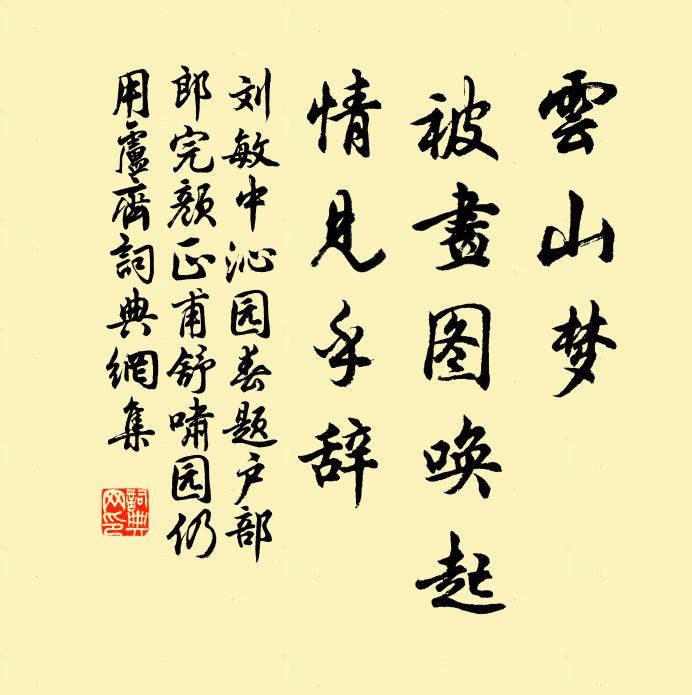 雲山梦
被畫图唤起
情見乎辞
刘敏中沁园春题户部
郎完颜正甫舒啸园仍
用廬齋詞典網集
詞典网印